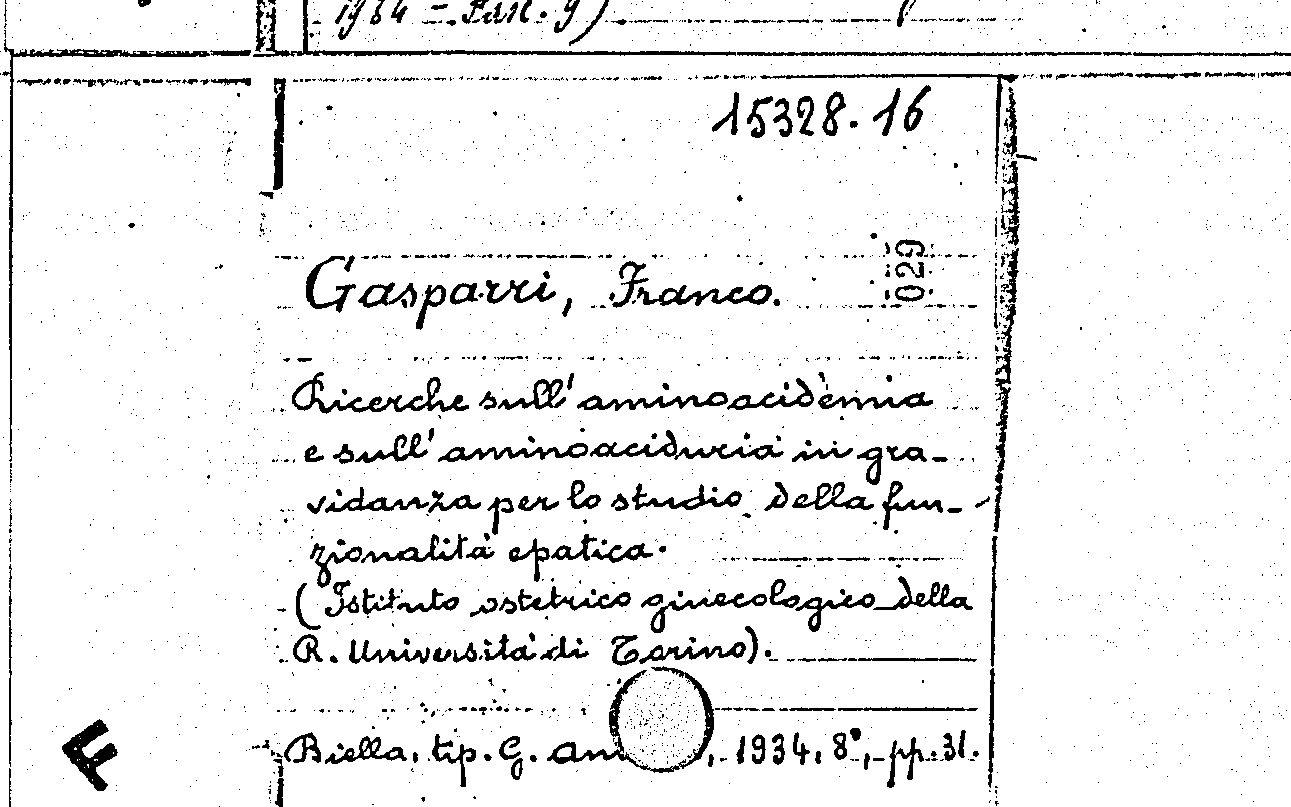 1934 - Fasc. 9).
15328.16
029
Gasparri, Franco.
Ricerche sull'aminoacidèmia
e sull'aminoaciduria in gra-
vidanza per lo studio della fun-
zionalità epatica.
(Istituto ostetrico ginecologico della
R. Università di Torino).
Biella, tip. G. , 1934, 8°, pp. 31.
F